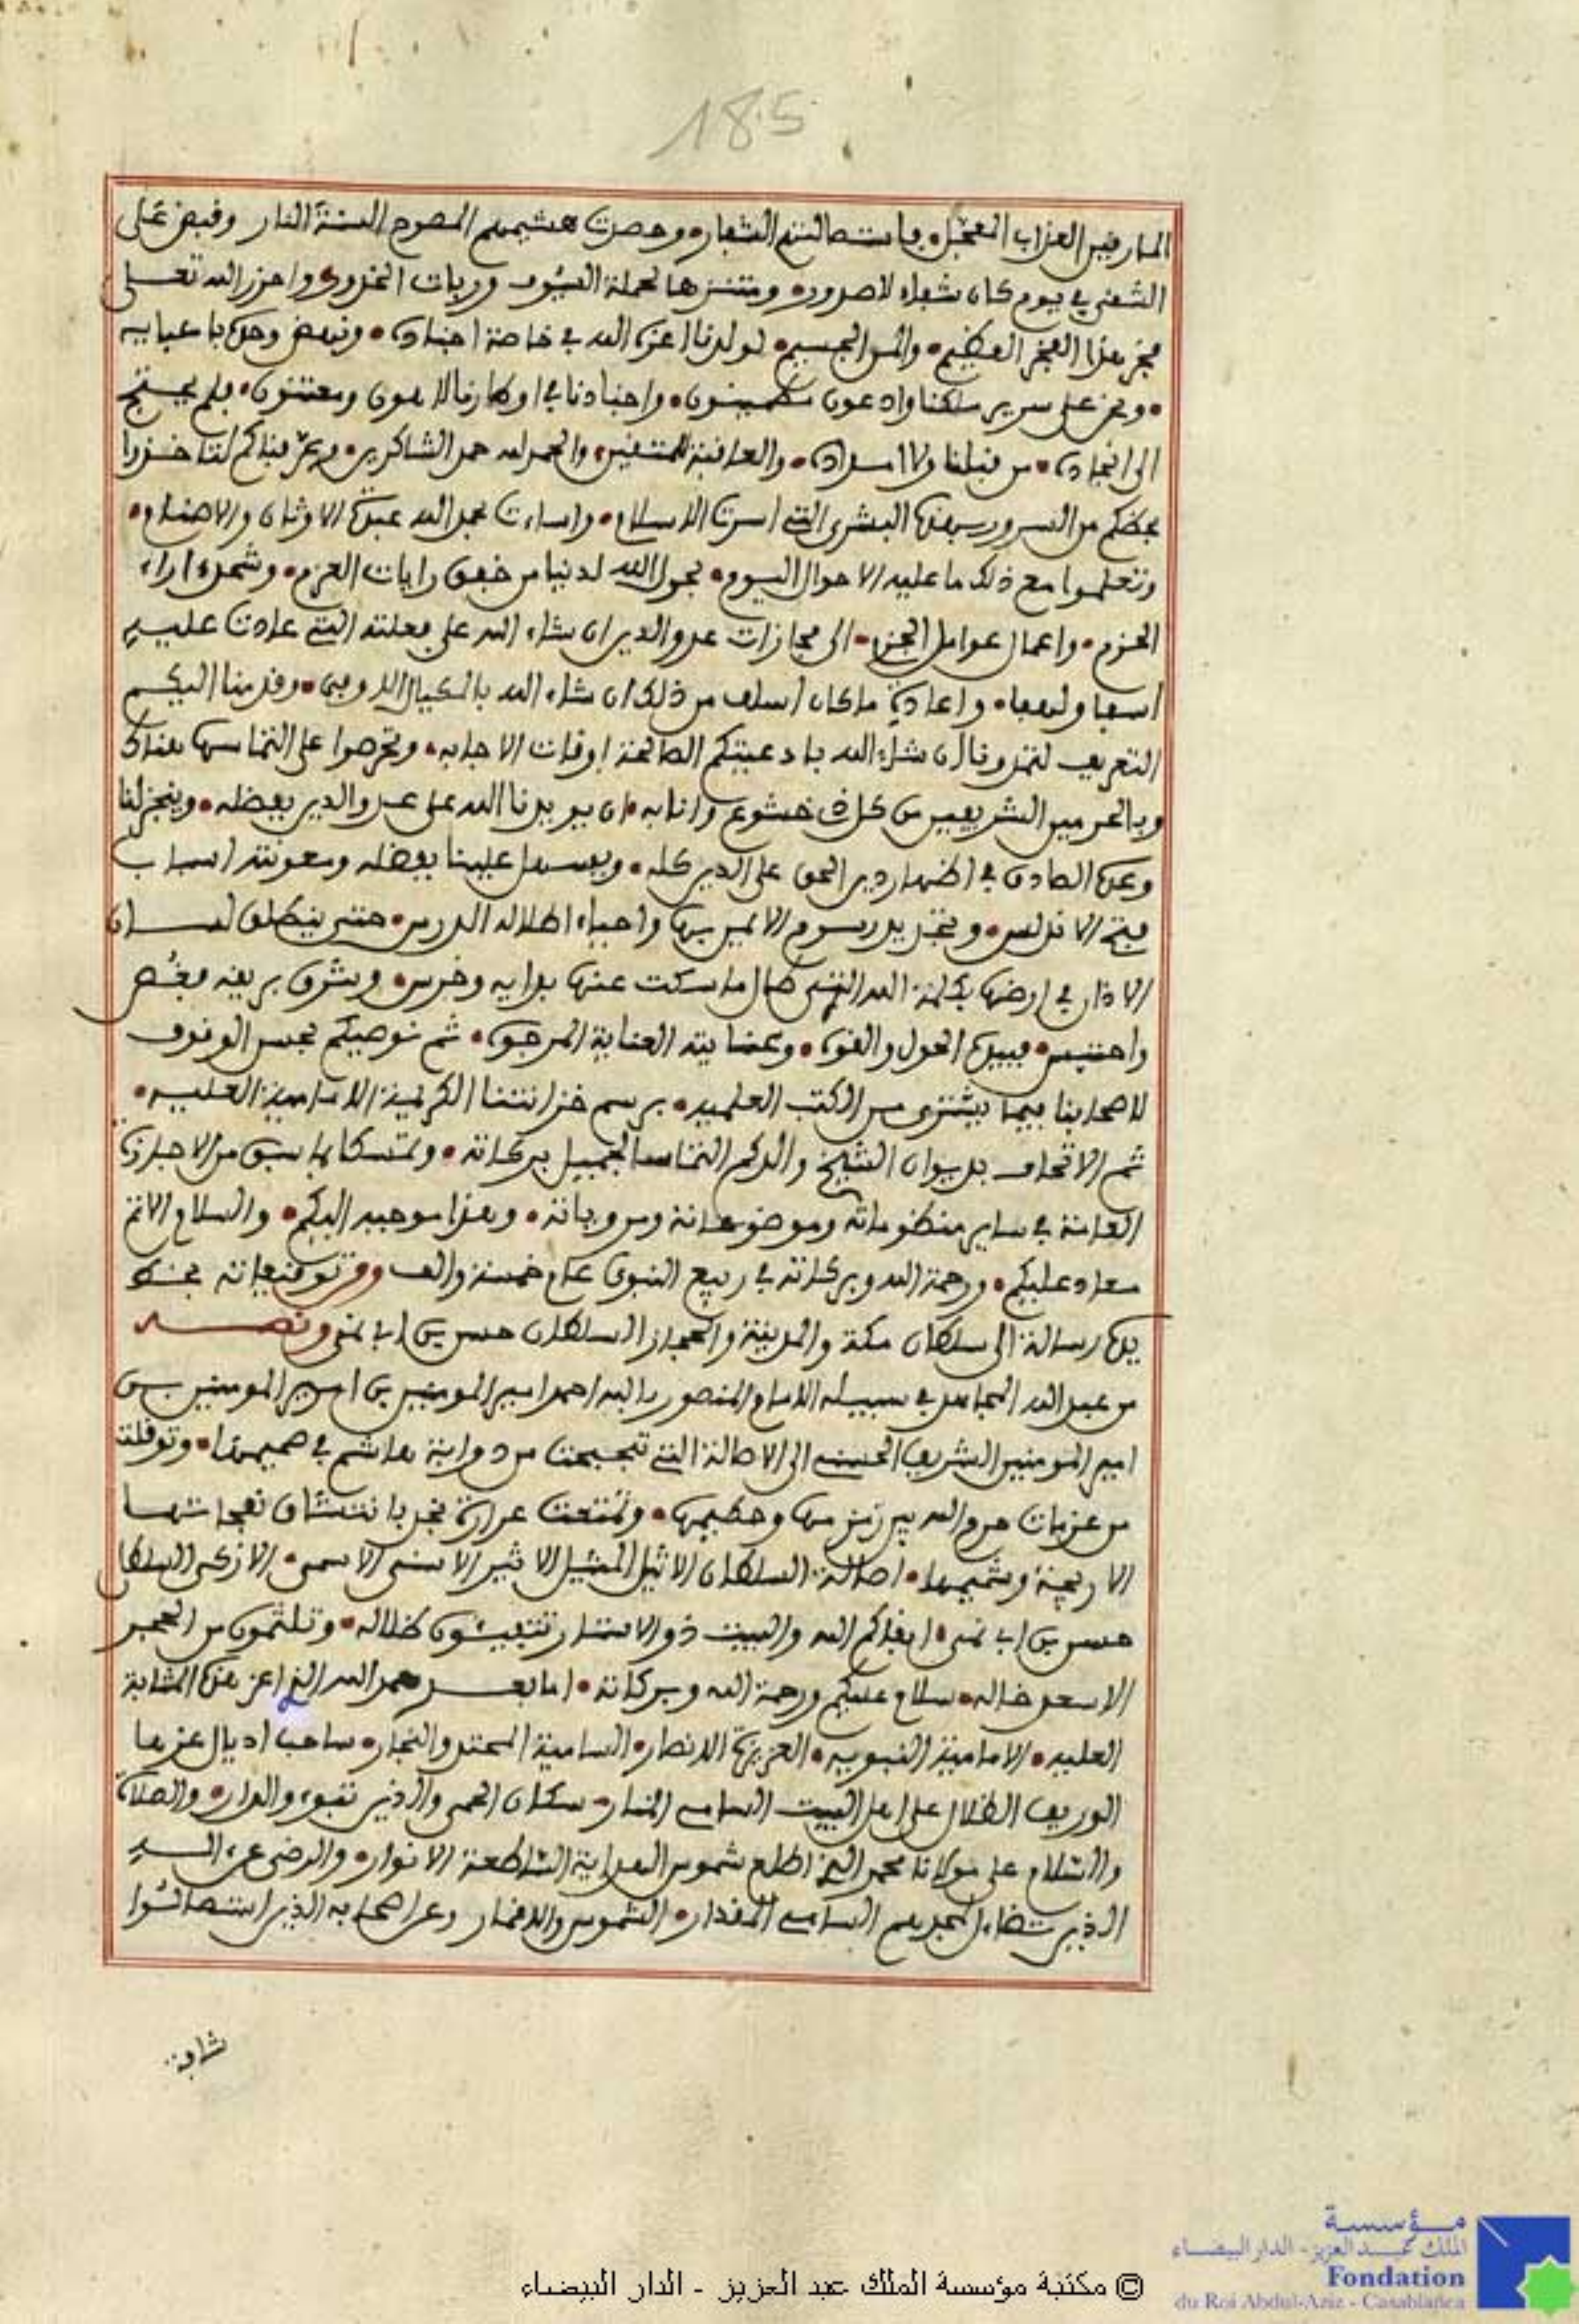 185
المارقين العذاب المعجل فاستصالتهم الشفار وحصدت هشيمهم المصوح السنة النار وقبض على
الشقي في يوم كان شفاء لاصدور ومتنزها لحملة السيوف وربات الخدور واحرز الله تعلى
فخر هذا الفخر العظيم والمن الجسيم لولدنا اعزه الله في خاصة اجناده ونهض وحده باعبايه
ونحن على سرير ملكنا وادعون مطمينون واجنادنا في اوكارنا لاهون ومعتنون فلم يحتج
الى انجاده من قبلنا ولا امداده والعاقبة للمتقين والحمد لله حمد الشاكرين وعرفناكم لتاخذوا
بحظكم من السرور بهذه البشرى التي اسرت الاسلام واساءت بحمد الله عبدة الاوثان والاصنام
وتعلموا مع ذلك ما عليه الاحوال اليوم بحول الله لدنيا من خفق رايات العزم وشحذ اراء
الحزم واعمال عوامل الجزم الى مجازات عدو الدين ان شاء الله على فعلته التي عادت عليه
اسفا ولهفا واعادة ما كان اسلف من ذلك ان شاء الله بالكيال الاوفى وقدمنا اليكم
التعريف لتمدونا ان شاء الله بادعيتكم الصالحة اوقات الاجابه وتحرصوا على التماسها هنالك
وبالحرمين الشريفين من كل ذي خشوع وانابه ان يويدنا الله على عدو الدين بفضله وينجز لنا
وعده الصادق في اظهار دين الحق على الدين كله ويسهل علينا بفضله ومعونته اسباب
فتح الاندلس وتجديد رسوم الايمن بها واحياء اطلاله الدرس حتى ينطلق لسان
الاذان في ارضها بكلمة الله التي طال ما سكت عنها بدايه وخرس وشرق بريقه فغص
واحتبس فبيده الحول والقوه وعنايته العناية المرجوه ثم نوصيكم بحسن الوقوف
لاصحابنا فيما يشترى من الكتب العلميه برسم خزانتنا الكريمة الامامية العليه
ثم الاتحاف بديوان الشيخ والدكم التماسا لجميل بركاته وتمسكا بما سبق من الاجازة
العامة في ساير منظوماته وموضوعاته ومروياته وهذا موجبه اليكم والسلام الاتم
معاد عليكم ورحمة الله وبركاته في ربيع النبوي عام خمسة والف ومن توقيعاته بخط
يده رسالة الى سلطان مكة والمدينة والحجاز السلطان حسن بن ابي نمي ونصه
من عبد الله المجاهد في سبيله الامام المنصور بالله احمد امير المومنين بن امير المومنين بن
امير المومنين الشريف الحسني الى الاصالة التي تبحبحت من دوابة هاشم في صميمها وتوقلت
من عزمات حرم الله بين زمزمها وحطيمها وتمتعت عرارة نجد بانتشاق نفحاتها
الاريجة وشميمها اصالة السلطان الاثيل المثيل الاثير الاسنى الاسمى الازكى السلطان
حسن بن ابي نمي ابقاكم الله والبيت ذو الاستار تتفيئون ظلاله وتلثمون من الحجر
الاسعد خاله سلام عليكم ورحمة الله وبركاته اما بعد حمد الله الذي اعز هذه المثابة
العليه الامامية النبويه العزيزة الانصار السامية المحتد والنجار ساحب اذيال عزها
الوريف الظلال على اهل البيت السامي المنار سكان الحمى والذين تبوءو الدار والصلاة
والسلام على مولانا محمد الذي اطلع شموس الهداية الساطعة الانوار والرضى عن اله
الذين تضاءل لمجدهم السامي المقدار الشموس والاقمار وعن اصحابه الذين استصاتوا
شافة
© مكتبة مؤسسة الملك عبد العزيز - الدار البيضاء
مؤسسة
الملك عبد العزيز - الدار البيضاء
Fondation
du Roi Abdul-Aziz - Casablanca